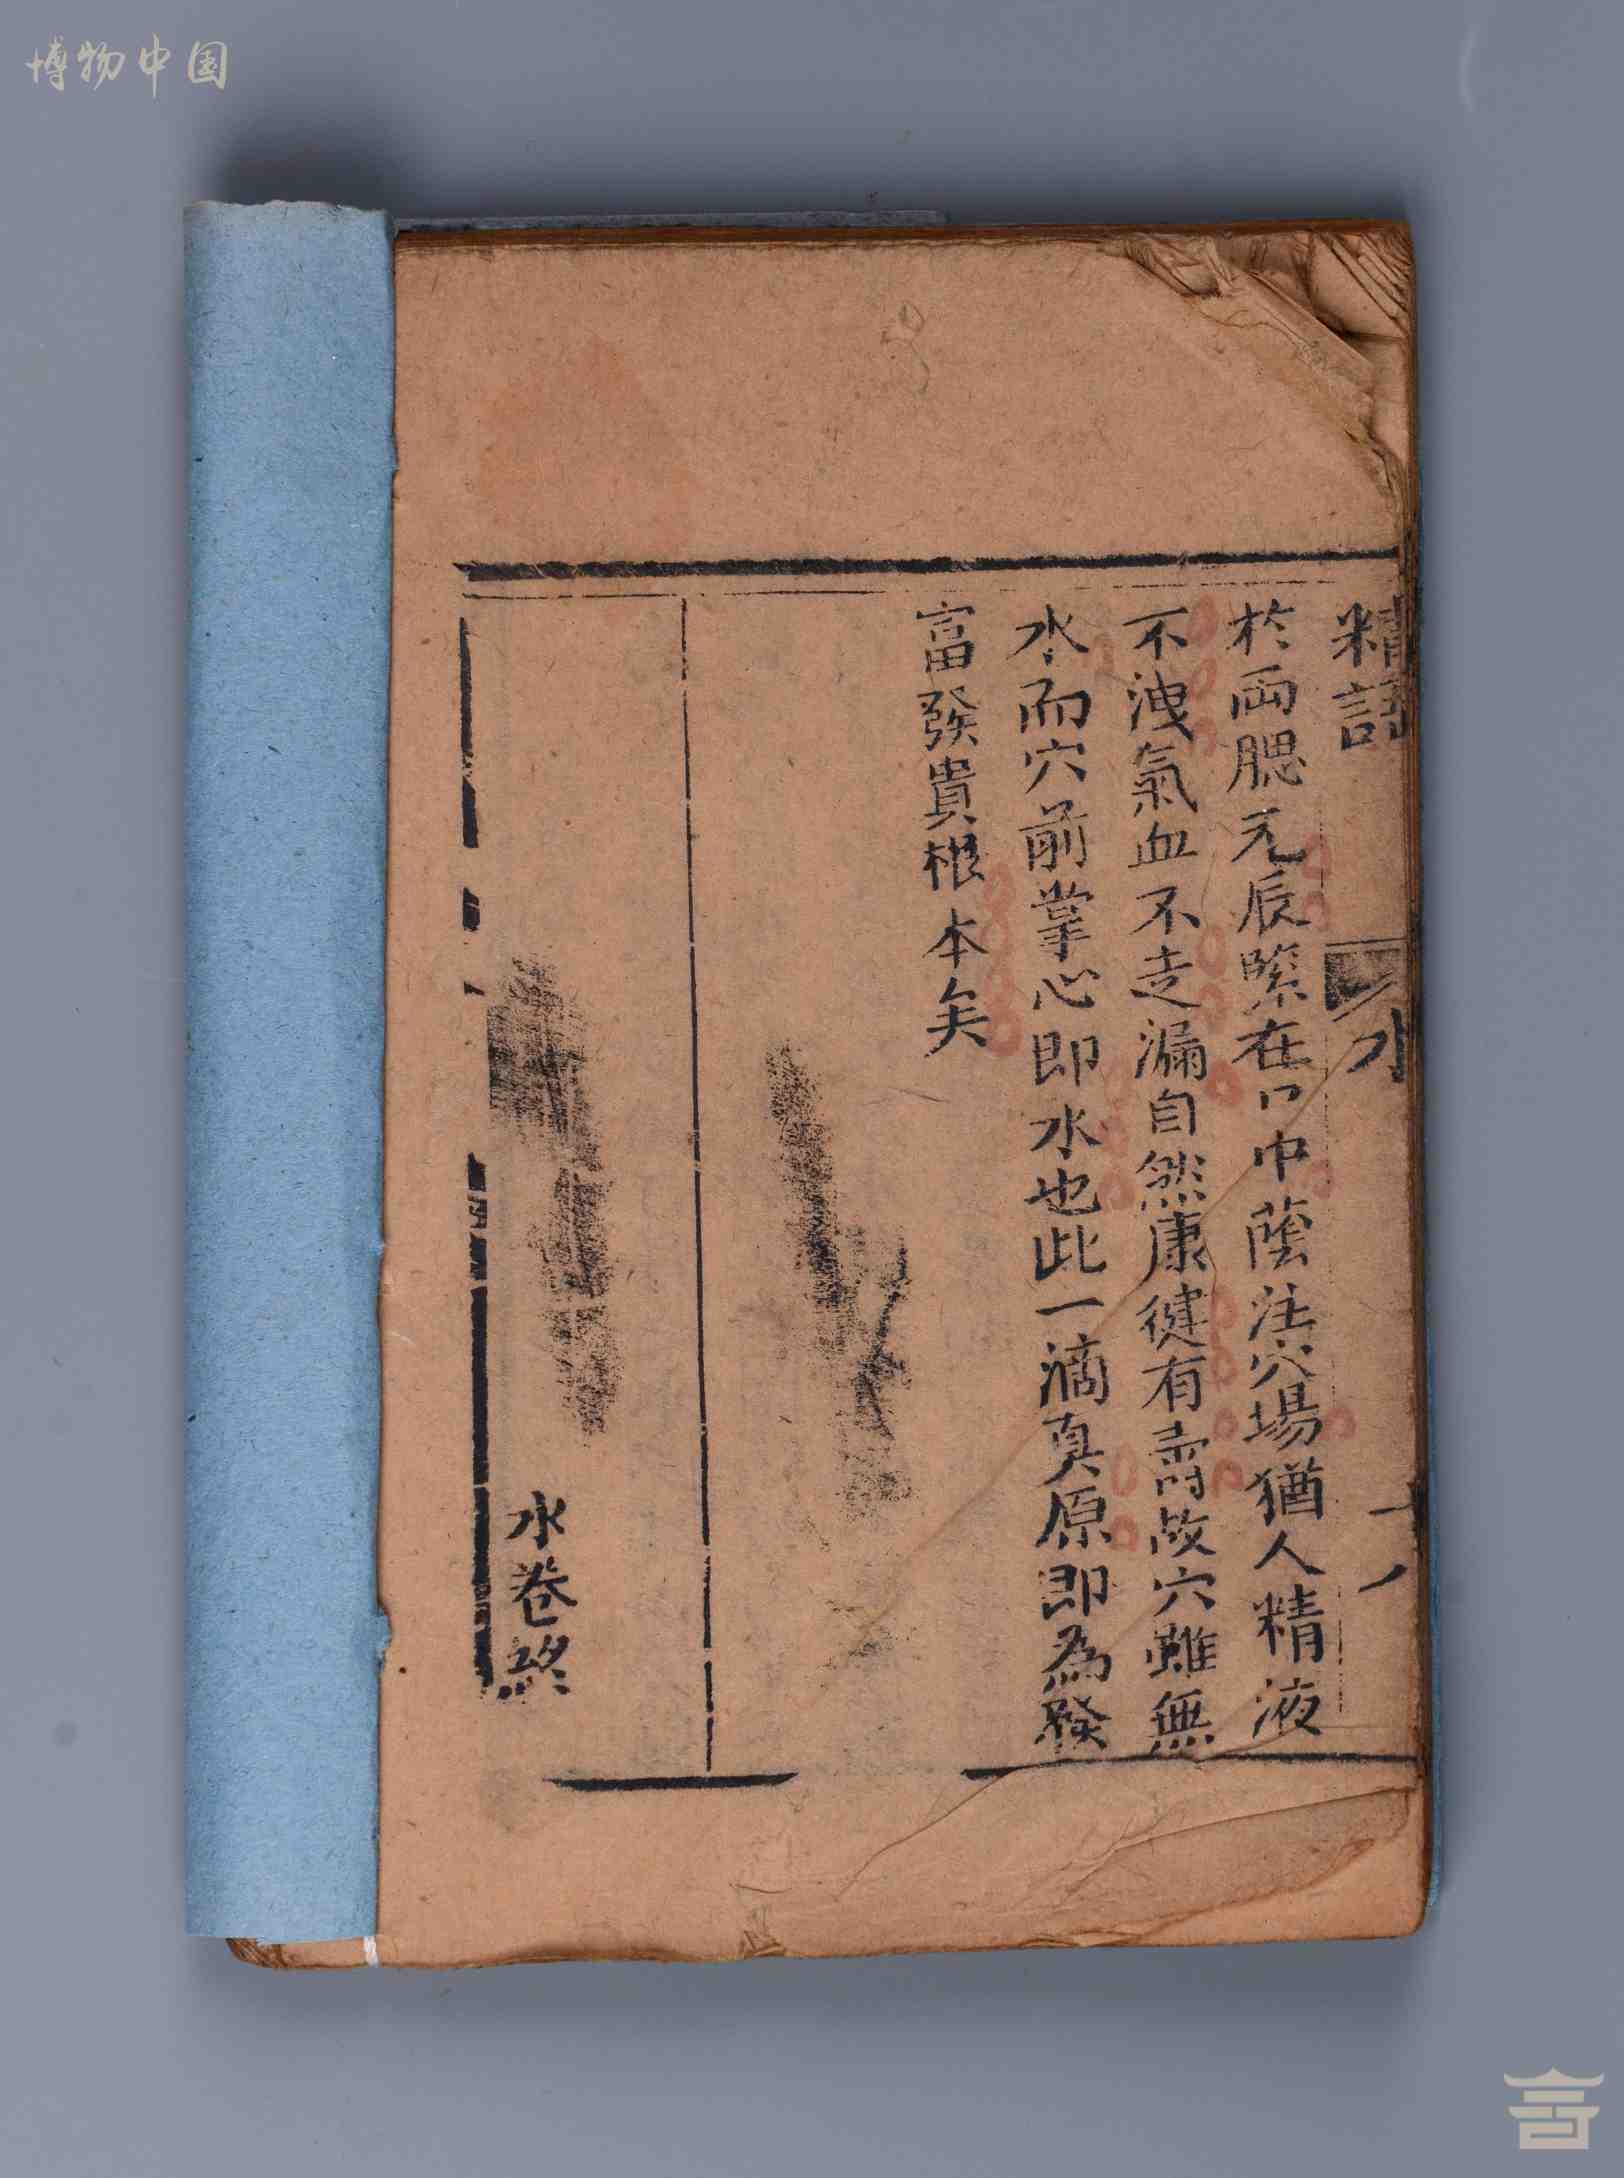 博物中国
精語
水
於両腮元辰緊在口中蔭注穴場猶人精液
不洩氣血不走漏自然康健有壽故穴雖無
水而穴前掌心即水也此一滴真原即為發
富發貴根本矣
水卷終